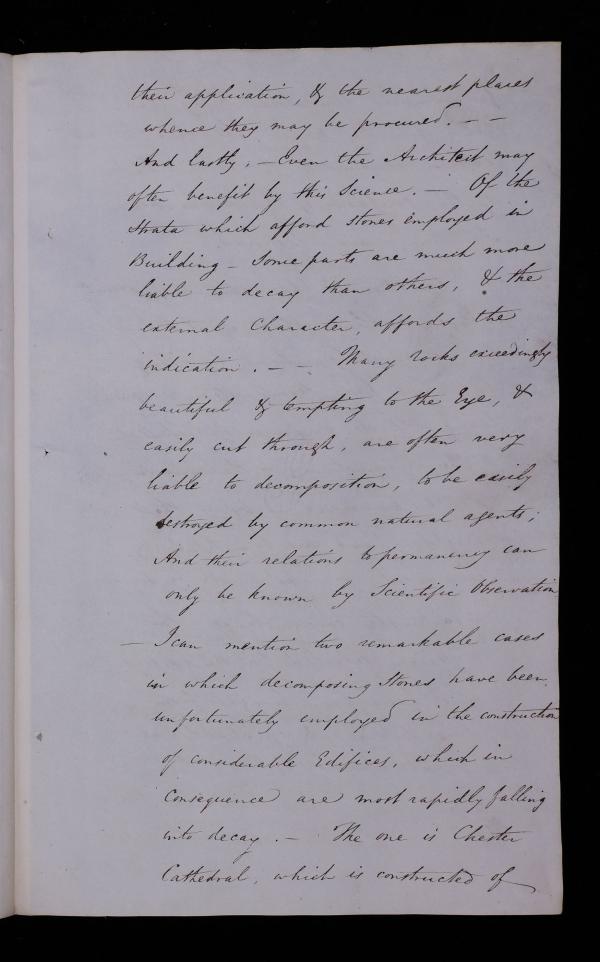 their application, & the nearest places
whence they may be procured. – –
And lastly, – Even the Architect may
often benefit by this Science. – Of the
Strata which afford stones employed in
Building – Some parts are much more
liable to decay than others, & the
external Character, affords the
indication. – – Many rocks exceedingly
beautiful & tempting to the Eye, &
easily cut through, are often very
liable to decomposition, to be easily
destroyed by common natural agents;
And their relations to permanency can
only be known by Scientific Observation
– I can mention two remarkable cases
in which decomposing Stones have been
unfortunately employed in the construction
of considerable Edifices, which in
Consequence are most rapidly falling
into decay. – The one is Chester
Cathedral, which is constructed of